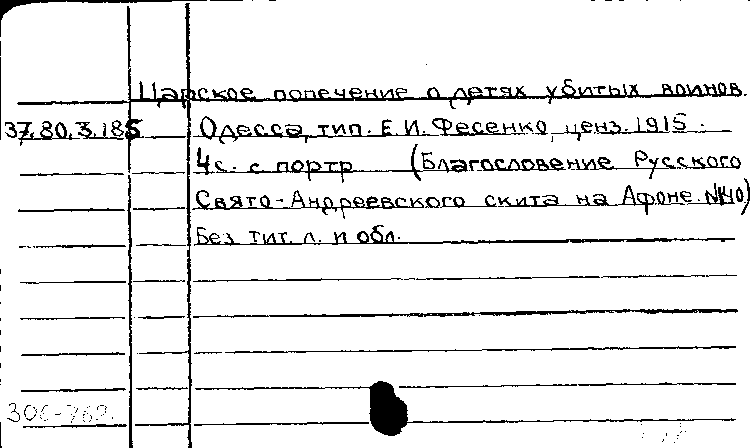 Царское попечение о детях убитых воинов.
37.80.3.185 Одесса, тип. Е.И. Фесенко, ценз. 1915.
4с. с портр (Благословение Русского
Свято-Андреевского скита на Афоне. №40)
Без тит. л. и обл.